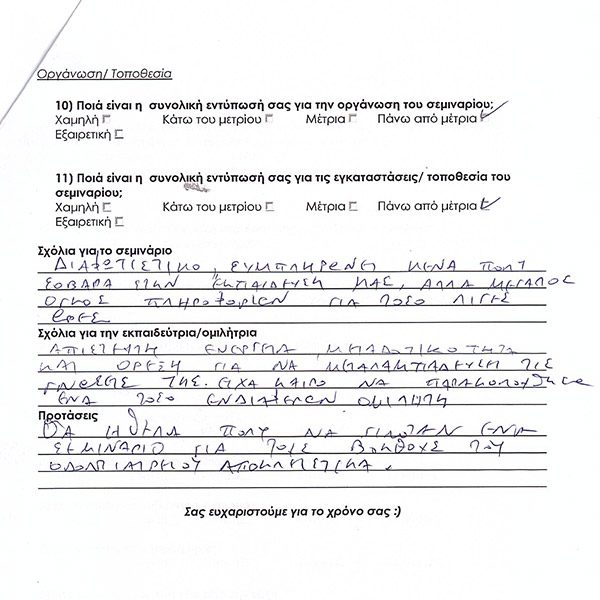 Οργάνωση/ Τοποθεσία
10) Ποιά είναι η συνολική εντύπωσή σας για την οργάνωση του σεμιναρίου;
Χαμηλή Κάτω του μετρίου Μέτρια Πάνω από μέτρια
Εξαιρετική
11) Ποιά είναι η συνολική εντύπωσή σας για τις εγκαταστάσεις/ τοποθεσία του
σεμιναρίου;
Χαμηλή Κάτω του μετρίου Μέτρια Πάνω από μέτρια
Εξαιρετική
Σχόλια για το σεμινάριο
ΔΙΑΦΩΤΙΣΤΙΚΟ, ΚΕΝΑ ΠΟΛΥ
ΣΟΒΑΡΑ ΣΤΗΝ ΕΚΠΑΙΔΕΥΣΗ ΜΑΣ, ΑΛΛΑ ΜΕΓΑΛΟΣ
ΟΓΚΟΣ ΠΛΗΡΟΦΟΡΙΩΝ ΓΙΑ ΤΟΣΟ ΛΙΓΕΣ
ΩΡΕΣ
Σχόλια για την εκπαιδεύτρια/ομιλήτρια
ΑΠΙΣΤΕΥΤΗ ΕΝΕΡΓΕΙΑ ΜΕΤΑΔΟΤΙΚΟΤΗΤΑ
ΚΑΙ ΟΡΕΞΗ ΓΙΑ ΝΑ ΤΙΣ
ΓΝΩΣΕΙΣ ΤΗΣ. ΕΙΧΑ ΚΑΙΡΟ ΝΑ ΠΑΡΑΚΟΛΟΥΘΗΣΩ
ΕΝΑ ΤΟΣΟ ΕΝΔΙΑΦΕΡΟΝ
Προτάσεις
ΘΑ ΗΘΕΛΑ ΠΟΛΥ ΝΑ ΓΙΝΟΤΑΝ ΕΝΑ
ΣΕΜΙΝΑΡΙΟ ΓΙΑ ΤΟΥΣ ΒΟΗΘΟΥΣ ΤΟΥ
ΟΔΟΝΤΙΑΤΡΕΙΟΥ ΑΠΟΚΛΕΙΣΤΙΚΑ.
Σας ευχαριστούμε για το χρόνο σας :)